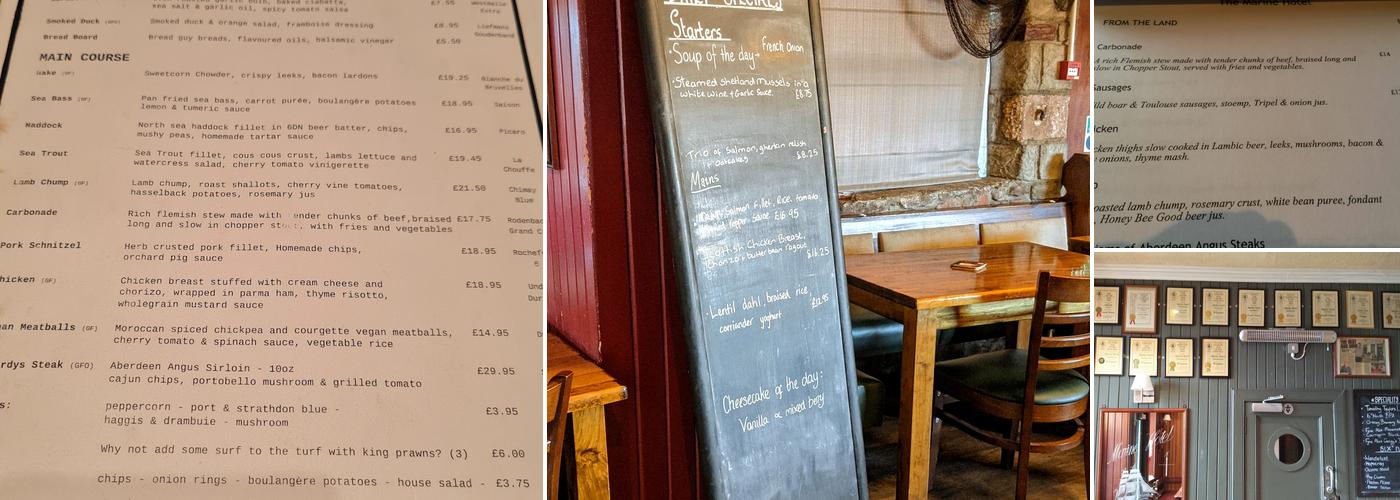 £7.95
Westmalle
Extra
sea salt & garlic oil, spicy tomato salsa
Smoked Duck (GFO) Smoked duck & orange salad, framboise dressing £8.95 Liefmans
Goudenband
Bread Board Bread guy breads, flavoured oils, balsamic vinegar £5.50
MAIN COURSE
Hake (GF) Sweetcorn Chowder, crispy leeks, bacon lardons £19.25 Blanche du
Bruxelles
Sea Bass (GF) Pan fried sea bass, carrot purée, boulangère potatoes £18.95 Saison
lemon & tumeric sauce
Haddock North sea haddock fillet in 6DN beer batter, chips, £16.95 Picaro
mushy peas, homemade tartar sauce
Sea Trout Sea Trout fillet, cous cous crust, lambs lettuce and £19.45 La
watercress salad, cherry tomato vinigerette Chouffe
Lamb Chump (GF) Lamb chump, roast shallots, cherry vine tomatoes, £21.50 Chimay
hasselback potatoes, rosemary jus Blue
Carbonade Rich flemish stew made with ender chunks of beef, braised £17.75 Rodenbac
long and slow in chopper st with fries and vegetables Grand C
Pork Schnitzel Herb crusted pork fillet, Homemade chips, £18.95 Rochef
orchard pig sauce
hicken (GF) Chicken breast stuffed with cream cheese and £18.95 Und
chorizo, wrapped in parma ham, thyme risotto, Dur
wholegrain mustard sauce
an Meatballs (GF) Moroccan spiced chickpea and courgette vegan meatballs, £14.95
cherry tomato & spinach sauce, vegetable rice
rdys Steak (GFO) Aberdeen Angus Sirloin - 10oz £29.95
cajun chips, portobello mushroom & grilled tomato
s: peppercorn - port & strathdon blue - £3.95
haggis & drambuie - mushroom
Why not add some surf to the turf with king prawns? (3) £6.00
chips - onion rings - boulangère potatoes - house salad - £3.75
Starters
Soup of the day - French Onion
Steamed Shetland Mussels in a
white wine & Garlic Sauce £8.75
Trio of Salmon, gherkin relish
Oatcakes £8.25
Mains
Salmon Fillet, Rice, tomato
pepper Sauce £16.95
Scottish Chicken Breast,
Chorizo & butterbean ragout £16.25
Lentil dahl, braised rice,
corriander yoghurt £12.95
Cheesecake of the day:
Vanilla & mixed berry
The Marine Hotel
FROM THE LAND
Carbonade
A rich Flemish stew made with tender chunks of beef, braised long and £14
slow in Chopper Stout, served with fries and vegetables.
Sausages
ild boar & Toulouse sausages, stoemp, Tripel & onion jus.
icken
cken thighs slow cooked in Lambic beer, leeks, mushrooms, bacon &
onions, thyme mash.
oasted lamb chump, rosemary crust, white bean puree, fondant
Honey Bee Good beer jus.
of Aberdeen Angus Steaks
Marine Hotel
SPECIALITY